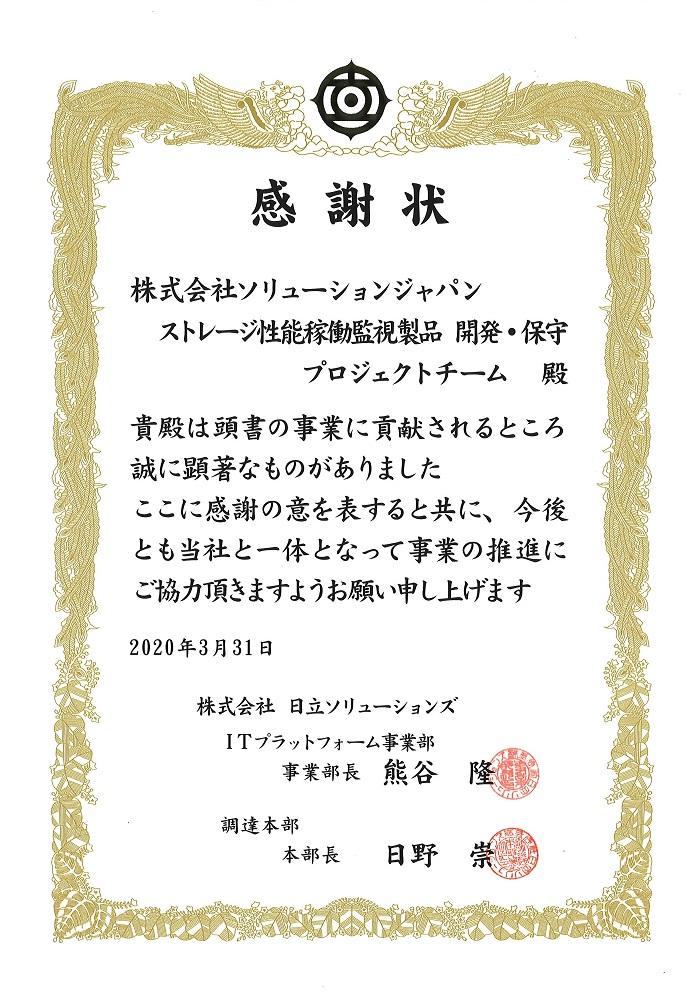 感謝状
株式会社ソリューションジャパン
ストレージ性能稼働監視製品 開発・保守
プロジェクトチーム 殿
貴殿は頭書の事業に貢献されるところ
誠に顕著なものがありました
ここに感謝の意を表すると共に、今後
とも当社と一体となって事業の推進に
ご協力頂きますようお願い申し上げます
2020年3月31日
株式会社 日立ソリューションズ
ITプラットフォーム事業部
事業部長 熊谷 隆
調達本部
本部長 日野 崇